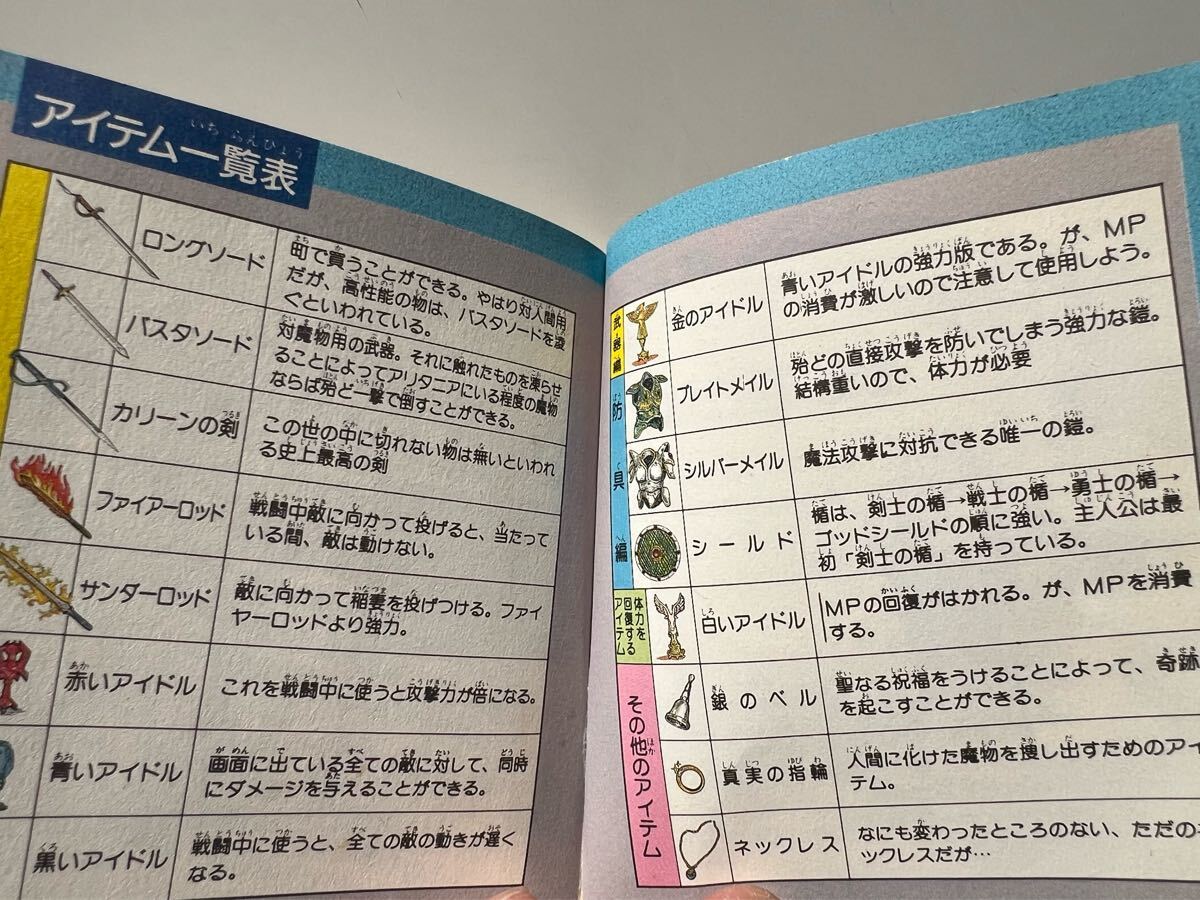 アイテム一覧表
いちらんひょう
ロングソード
町で買うことができる。やはり対人間用
だが、高性能の物は、バスタソードを凌
ぐといわれている。
バスタソード
対魔物用の武器。それに触れたものを凍らせ
ることによってアリタニアにいる程度の魔物
ならば殆ど一撃で倒すことができる。
カリーンの剣
この世の中に切れない物は無いといわれ
る史上最高の剣
ファイアーロッド
戦闘中敵に向かって投げると、当たって
いる間、敵は動けない。
サンダーロッド
敵に向かって稲妻を投げつける。ファイ
ヤーロッドより強力。
赤いアイドル
これを戦闘中に使うと攻撃力が倍になる。
青いアイドル
画面に出ている全ての敵に対して、同時
にダメージを与えることができる。
黒いアイドル
戦闘中に使うと、全ての敵の動きが遅く
なる。
武器編
金のアイドル
青いアイドルの強力版である。が、MP
の消費が激しいので注意して使用しよう。
防具編
プレイトメイル
殆どの直接攻撃を防いでしまう強力な鎧。
結構重いので、体力が必要
シルバーメイル
魔法攻撃に対抗できる唯一の鎧。
シールド
楯は、剣士の楯→戦士の楯→勇士の楯→
ゴッドシールドの順に強い。主人公は最
初「剣士の楯」を持っている。
体力を
回復する
アイテム
白いアイドル
MPの回復がはかれる。が、MPを消費
する。
その他のアイテム
銀のベル
聖なる祝福をうけることによって、奇跡
を起こすことができる。
真実の指輪
人間に化けた魔物を捜し出すためのアイ
テム。
ネックレス
なにも変わったところのない、ただのネ
ックレスだが…